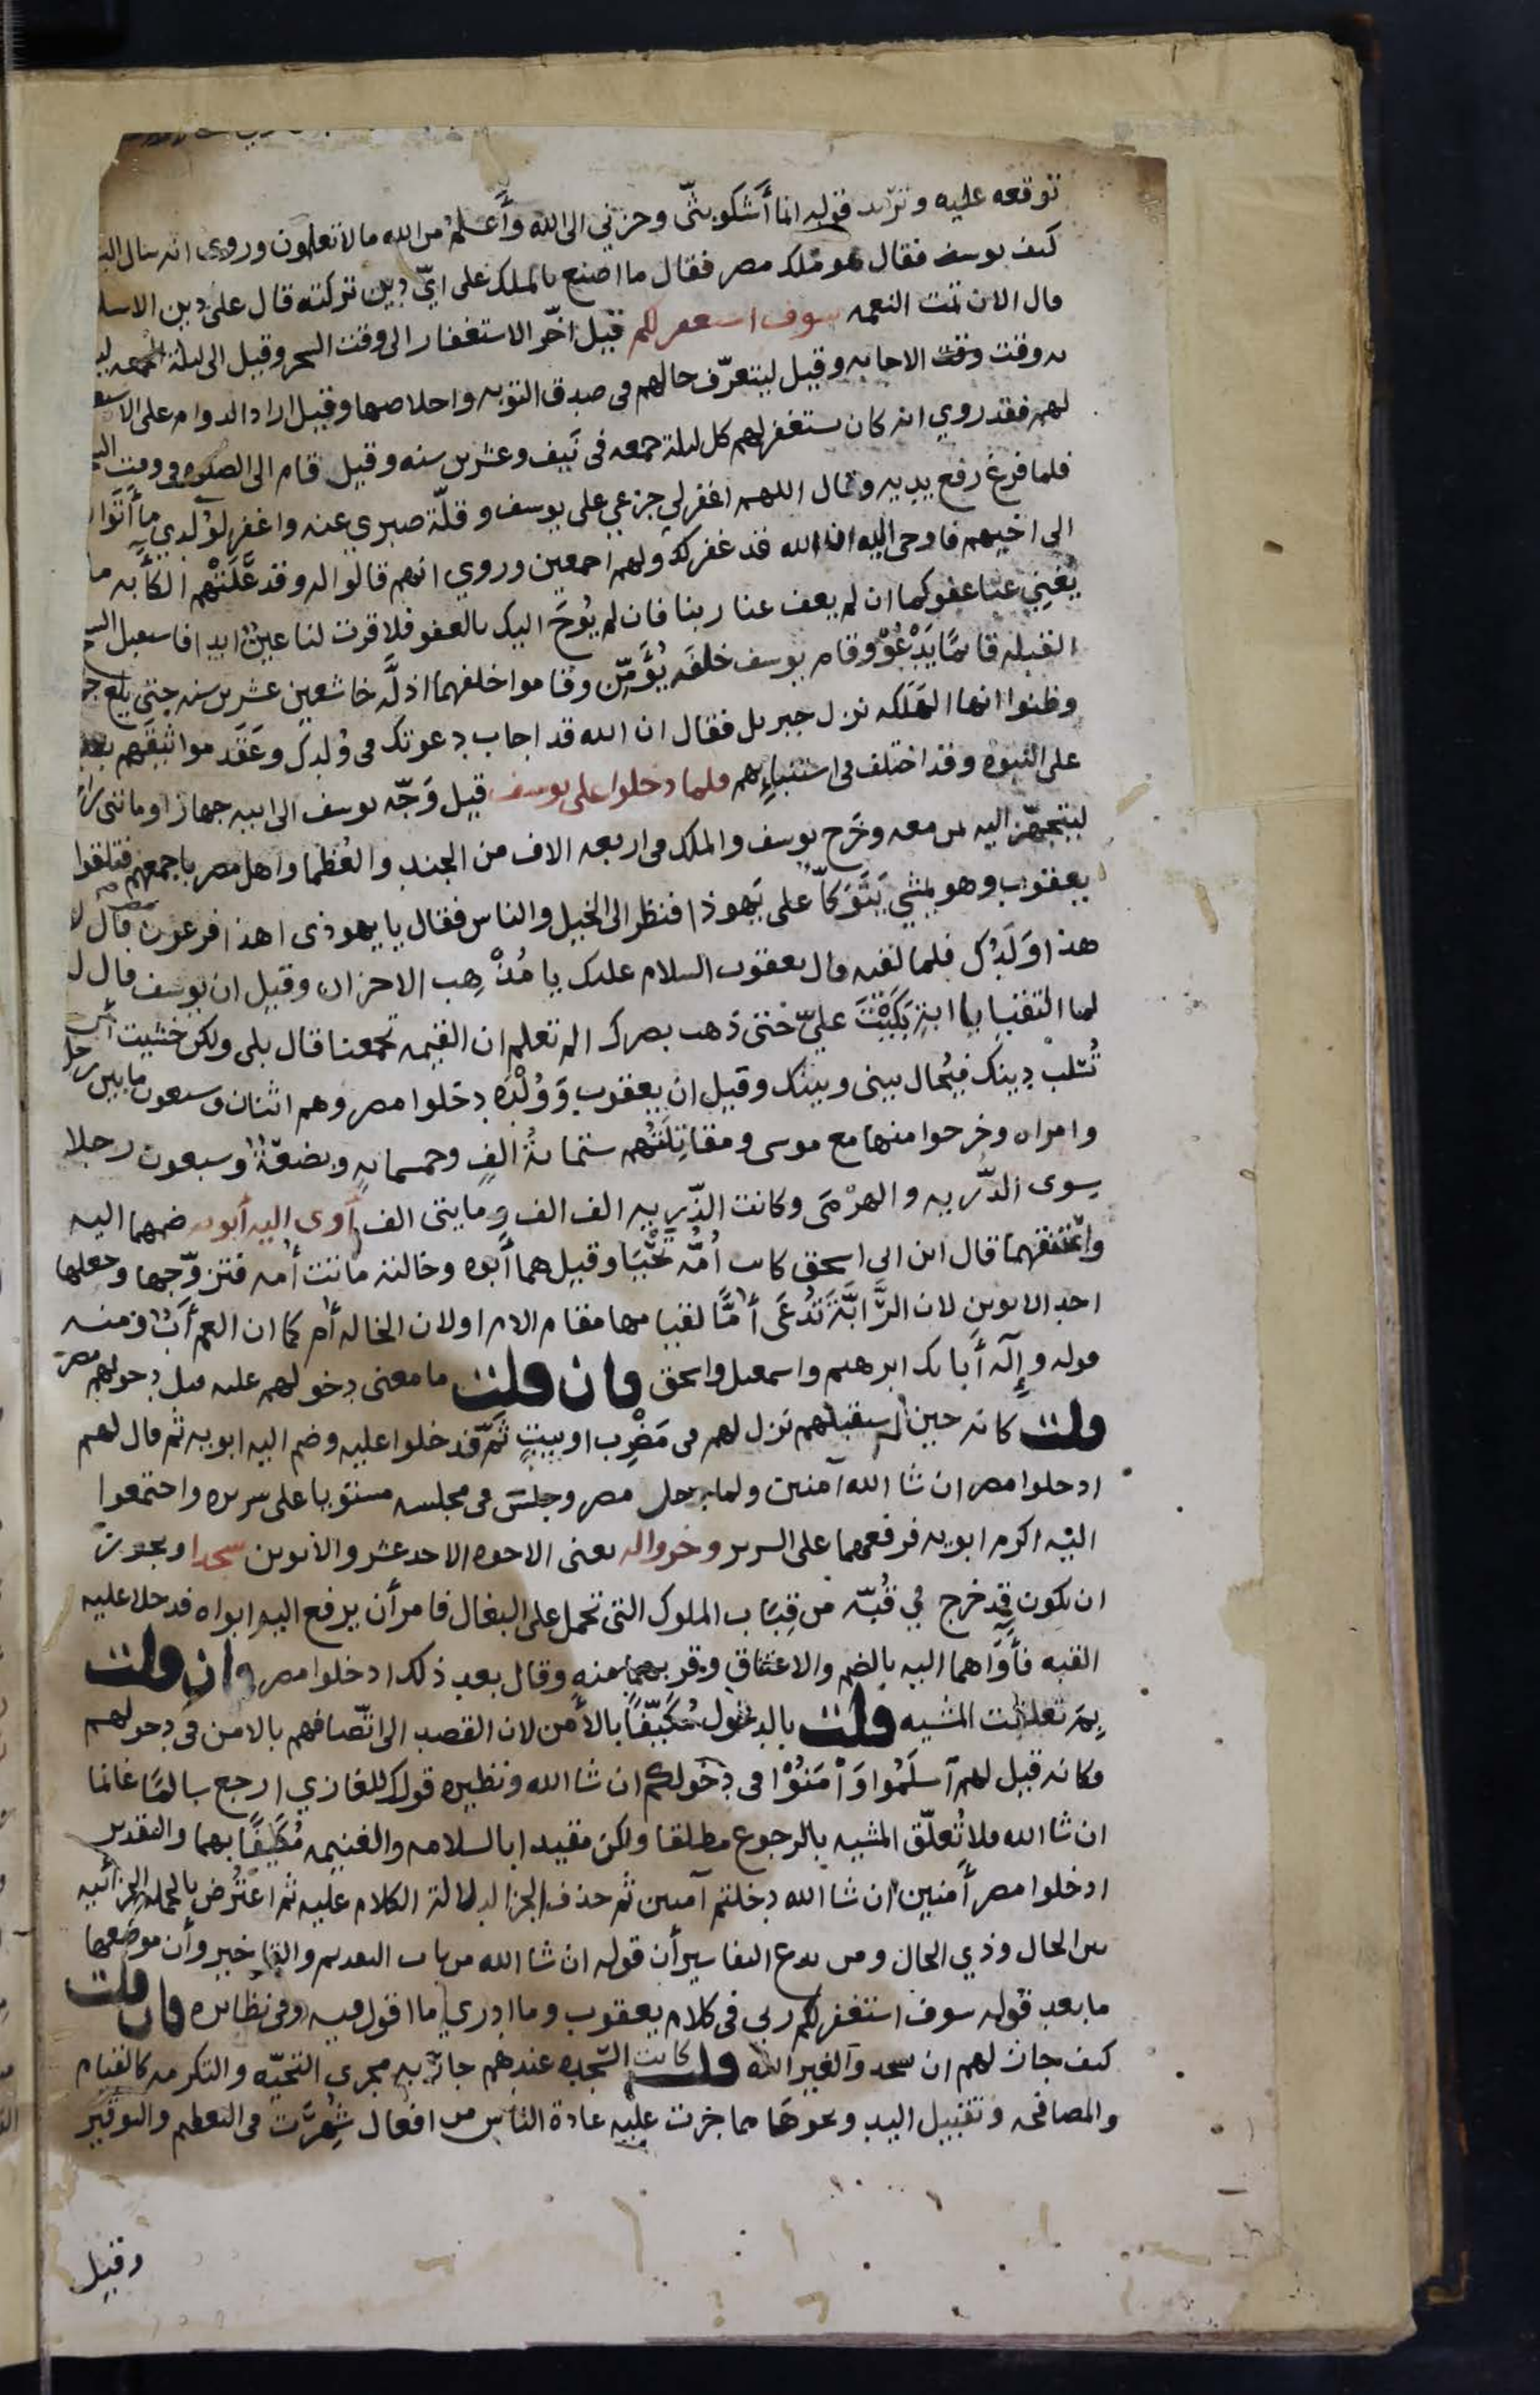 توقعه عليه وترىد قوله انما أَشكو بثّى وحزني الى الله وأَعلم من الله ما لا تعلمون وروى انه سال الب
كىف يوسف فقال هو مَلك مصر فقال ما اصنع بالملك على ايّ دين تركته قال على دين الاسلا
قال الان تمت النعمه سوف استغفر لكم قيل اخّر الاستغفار الى وقت السحر وقيل الى ليلة الجمعه ليـ
به وقت وقت الاجابه وقيل ليتعرّف حالهم فى صدق التوبه واخلاصها وقيل اراد الدوام على الاستغـ
لهم فقد روي انه كان يستغفر لهم كل ليلة جمعه فى نَيف وعشرين سنه وقيل قام الى الصلوه فى وقت الـ
فلما فرغ رفع يديه وقال اللهم اغفر لي جزعي على يوسف وقلّة صبري عنه واغفر لوُلدي ما أَتَوا
الى اخيهم فاوحى اليه ان الله قد غفر لك ولهم اجمعين وروي انهم قالوا له وقد عَلَتْهم الكأبه ما
يُغنِي عنا عفوكما ان لم يعف عنا ربنا فان لم يُوحَ اليك بالعفو فلا قرت لنا عينٌ ابدا فاستقبل الشـ
القبله قائمًا يَدْعُوْ وقام يوسف خلفَه يُؤَمِّن وقاموا خلفهما اذلَّه خاشعين عشرين سنه حتى بلغ جـ
وظنوا انها الهَلَكه نزل جبريل فقال ان الله قد اجاب دعوتك فى وُلدك وعَقَد مواثيقَهم بعد
على النبوه وقد اختلف فى استنباءِهم فلما دخلوا على يوسف قيل وَجّه يوسف الى ابيه جهازا ومائتى را
ليتجهّز اليه بمن معه وخَرج يوسف والملك فى اربعه الاف من الجند والعُظما واهل مصر باجمعهم فتلقوا
يعقوب وهو يمشي يَتَوَكأُ على يَهوذا فنظر الى الخيل والناس فقال يا يهوذى اهذا فرعون مصر قال لا
هذا وَلَدُك فلما لقيه قال يعقوب السلام عليك يا مُذْهِب الاحزان وقيل ان يوسف قال ل
لما التقيا يا ابتِ بَكَيْتَ عليّ حتى ذهب بصرك الم تعلم ان القيمه تجمعنا فقال بلى ولكن خشيت أن
تُسْلبْ دينك فيُحال بينى وبينك وقيل ان يعقوب وَوُلْدَه دخلوا مصر وهم اثنان وسبعون ما بين رجل
وامراه وخرجوا منها مع موسى ومقاتِلَتُهم ستمائةُ الفٍ وخمسمائهٍ وبضعةٌ وسبعون رجلا
سوى الذّريه والهرْمَى وكانت الذّريه الف الف ومايتى الف آوى اليه أَبويه ضمهما اليه
واعتنقهما قال ابن ابى اسحق كانت اُمُّه تَحْيَا وقيل هما أَبوه وخالته ماتت أُمه فتزوّجها وجعلها
احد الابوين لان الرَّابَّةَ تُدْعَى أُمًّا لقيامها مقام الام او لان الخاله أُم كما ان العم أَبٌ ومنه
قوله وإِلٓه أَبايك ابرهيم واسمعيل واسحق فان قلت ما معنى دخولهم عليه قبل دخولهم مصر
قلت كانه حين استقبلهم نزل لهم فى مَضْرِب او بيتٍ ثَمّ فدخلوا عليه وضم اليه ابويه ثم قال لهم
ادخلوا مصر ان شا الله آمنين ولما دخل مصر وجلس فى مجلسه مستويا على سريره واجتمعوا
اليه اكرم ابويه فرفعهما على السرير وخروا له يعنى الاخوه الاحد عشر والابوين سجدا ويجوز
ان يكون قد خرج فِي قُبّه من قِبَاب الملوك التى تحمل على البغال فامر أن يرفع اليه ابواه فدخلا عليه
القبه فأَوَاهما اليه بالضم والاعتناق وقربهما منه وقال بعد ذلك ادخلوا مصر فان قلت
بِمَ تعلقت المشيه قلت بالدخول مُكَيّفًا بالأمن لان القصد الى اتّصافهم بالامن فى دخولهم
فكانه قيل لهم آسلَمُوا وَأْمَنُوْا فى دخولكم ان شا الله ونظيره قولك للغازي ارجع سالمًا غانما
ان شا الله فلا تُعلّق المشيه بالرجوع مطلقا ولكن مقيدا بالسلامه والغنيمه مُكيفًا بهما والتقدير
ادخلوا مصر أَمنين ان شا الله دخلتم آمنين ثم حذف الجزا لدلالة الكلام عليه ثم اعتُرض بالجمله الجزائيه
بين الحال وذي الحال ومن بدع التفاسير أن قوله ان شا الله من باب التقديم والتاخير وأن موضعها
ما بعد قوله سوف استغفر لكم ربى فى كلام يعقوب وما ادري ما اقول فيه وفى نظائره فان قلت
كيف جاز لهم ان يسجدوا لغير الله قلت كانت السّجده عندهم جاريه مجرى التحيّه والتكرمه كالقيام
والمصافحه وتقبيل اليد ونحوهَا مما جَرت عليْه عادة الناس من افعال شُهِرَتْ فى التعظيم والتوقير
وقيل